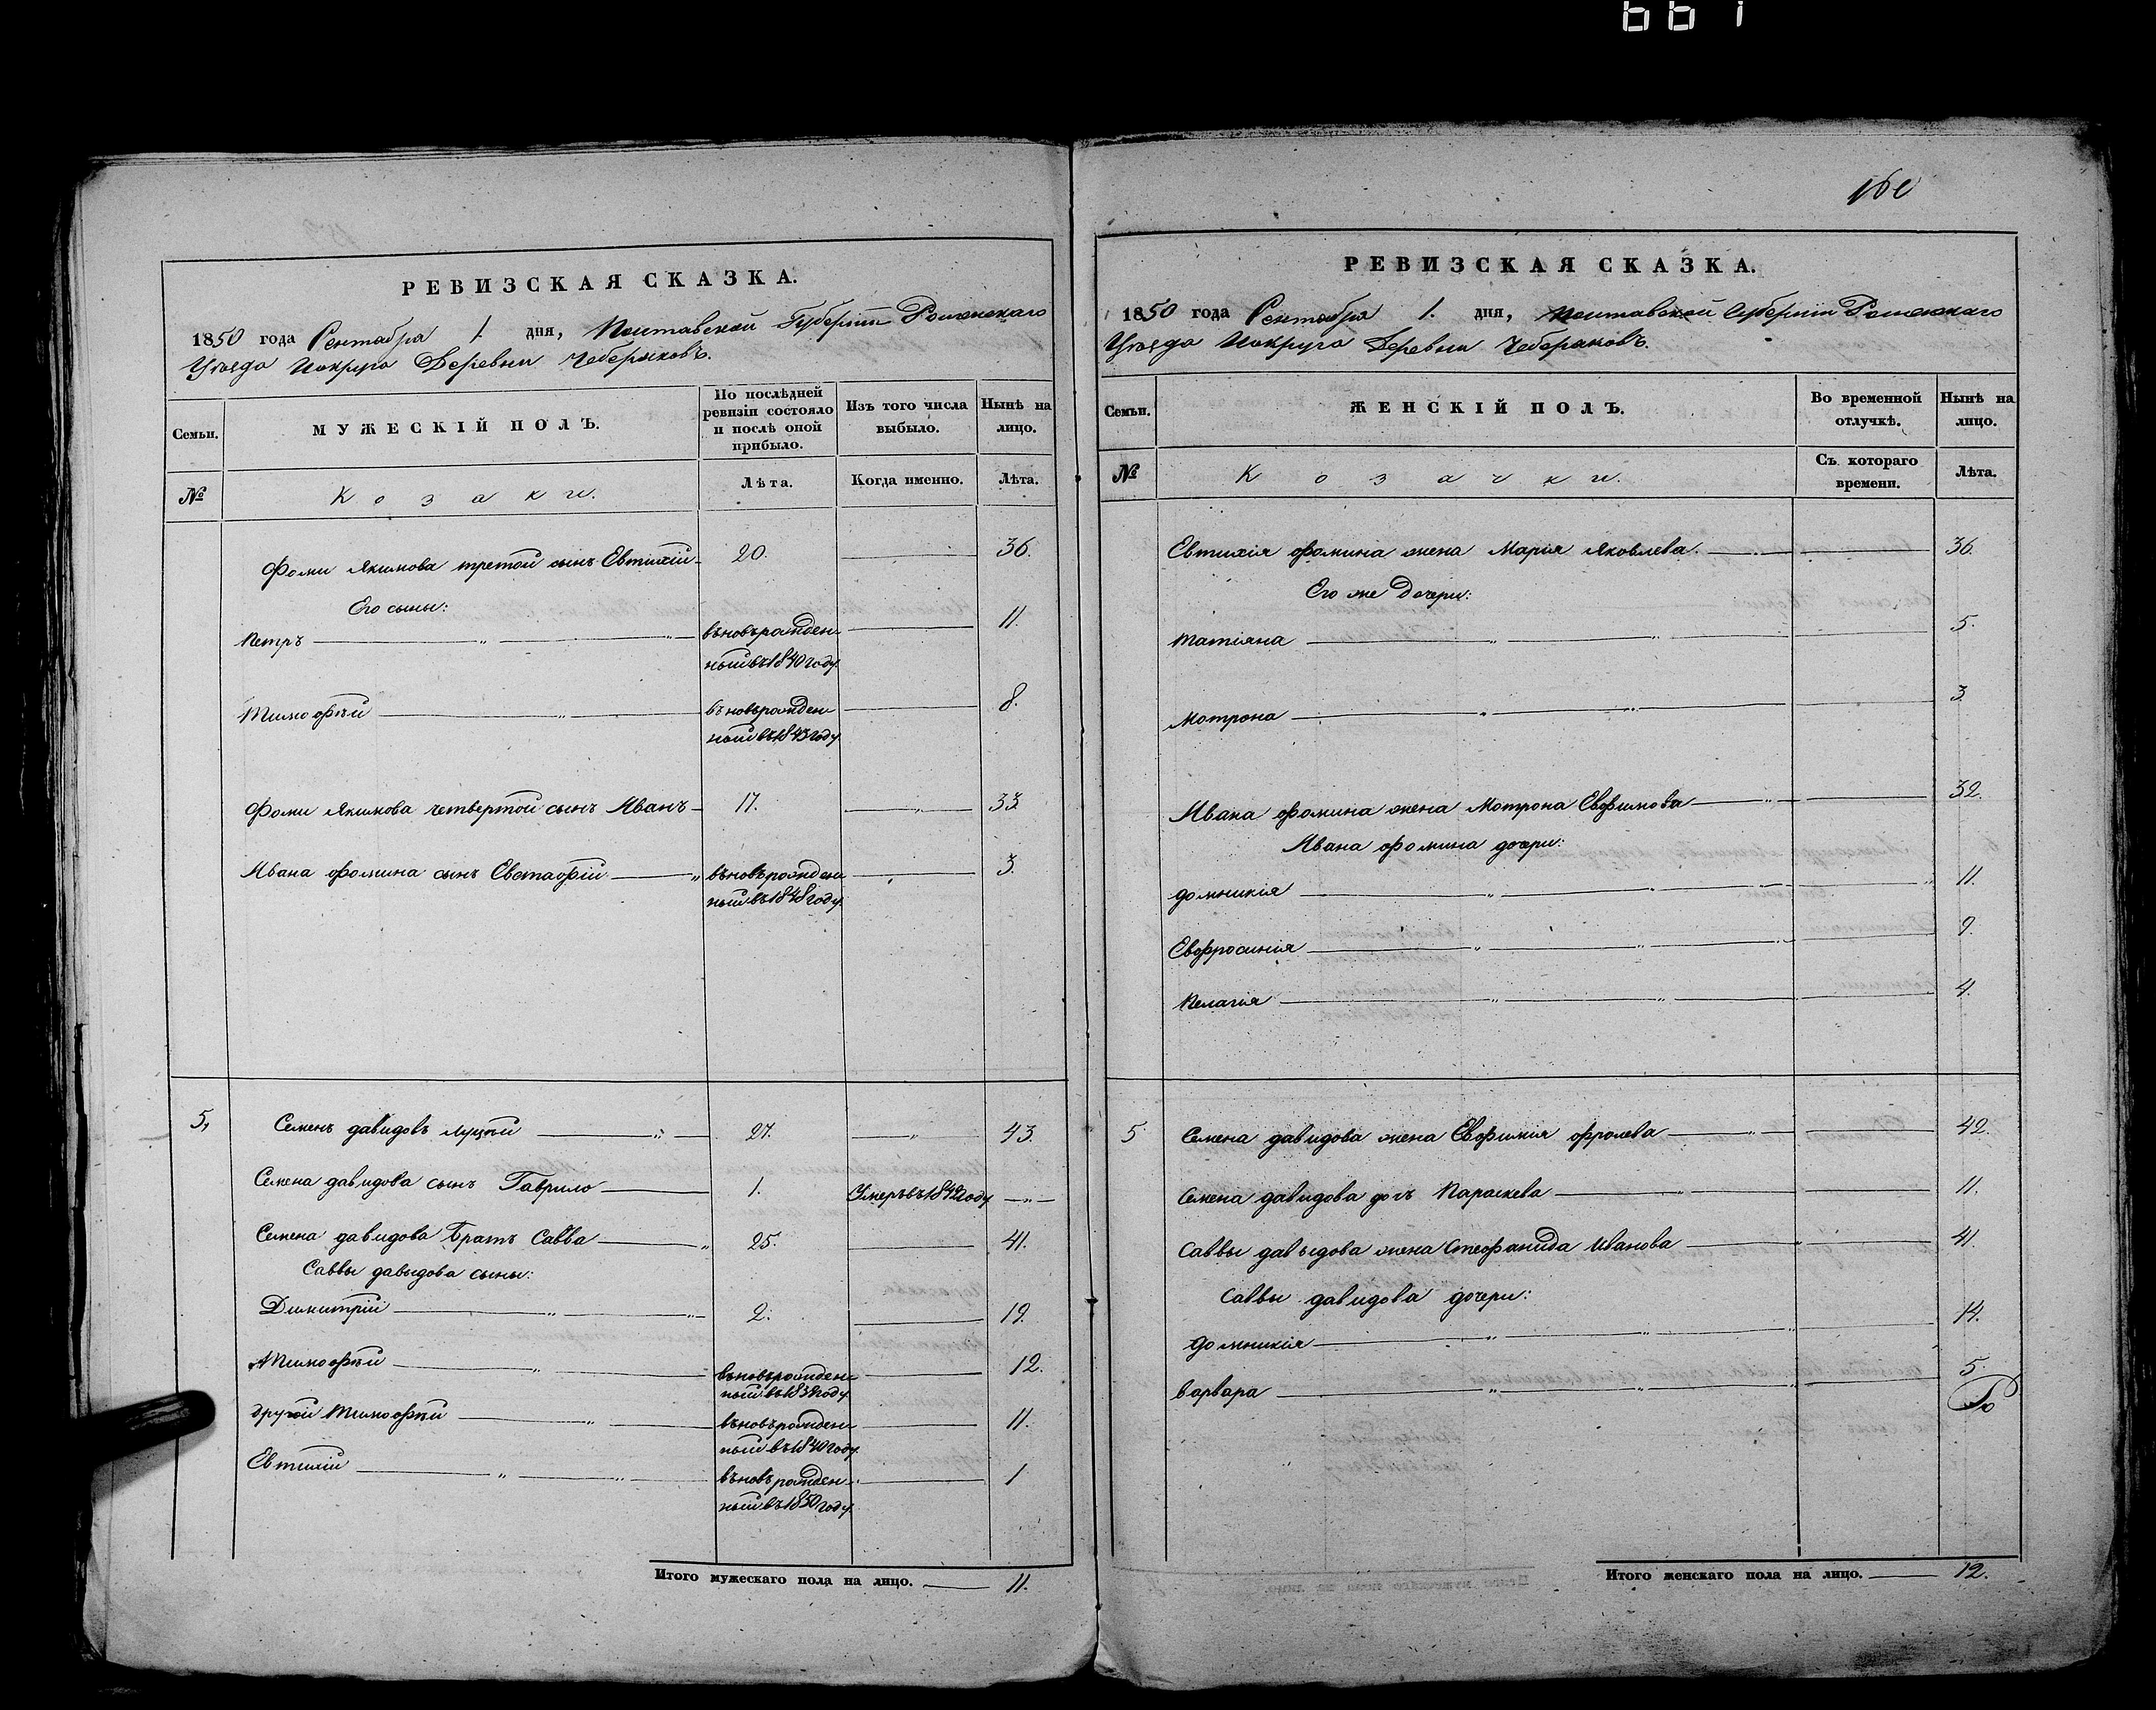 661
160
РЕВИЗСКАЯ СКАЗКА.
1850 года Сентября 1. дня, Полтавской Губерніи Роменскаго
Уѣзда Иокруга Деревни Чеберяковъ.
Семьи.
МУЖЕСКІЙ ПОЛЪ.
По послѣдней ревизіи состояло и послѣ оной прибыло.
Изъ того числа выбыло.
Нынѣ на лицо.
№
Козаки.
Лѣта.
Когда именно.
Лѣта.
Фомы Якимова третой сынъ Евтихій 20. 36.
Его сыны:
Петръ " " вѣновърожден 11.
ный въ 1840 году.
Тимофѣй " вѣновърожден 8.
ный въ 1843 году.
Фомы Якимова четвертой сынъ Иванъ 17. " 33.
Ивана Фомина сынъ Евстафій " вѣновърожден 3.
ный въ 1848 году.
5, Семенъ давидовъ " 27. " 43.
Семена давидова сынъ Гаврило 1. Умеръ въ 1842 году "
Семена давидова Братъ Савва " 25. 41.
Саввы давыдова сыны:
Димитрій " " 2. 19.
Тимофѣй " вѣновърожден 12.
ный въ 1839 году.
другой Тимофѣй " вѣновърожден 11.
ный въ 1840 году.
Евтихій " " вѣновърожден 1
ный въ 1850 году.
Итого мужескаго пола на лицо. 11.
РЕВИЗСКАЯ СКАЗКА.
1850 года Сентября 1. дня, Полтавской Губерніи Роменскаго
Уѣзда Иокруга Деревни Чеберяковъ.
Семьи.
ЖЕНСКІЙ ПОЛЪ.
Во временной отлучкѣ.
Нынѣ на лицо.
№
Козачки.
Съ котораго времени.
Лѣта.
Евтихія Фомина жена Марія Яковлева. 36.
Его же Дочери:
Татіяна " " 5.
Мотрона " " 3
Ивана Фомина жена Мотрона Евфимова " 32.
Ивана Фомина дочери:
домникія " " " 11.
Евфросинія " " " 9.
Пелагія " " 4.
5 Семена давидова жена Евфимія Фролева " 42.
Семена давидова дочь Параскева " 11.
Саввы давыдова жена Стефанида Иванова " 41
Саввы давидова дочери:
домникія " " " 14.
варвара " " " 5.
Итого женскаго пола на лицо. 12.